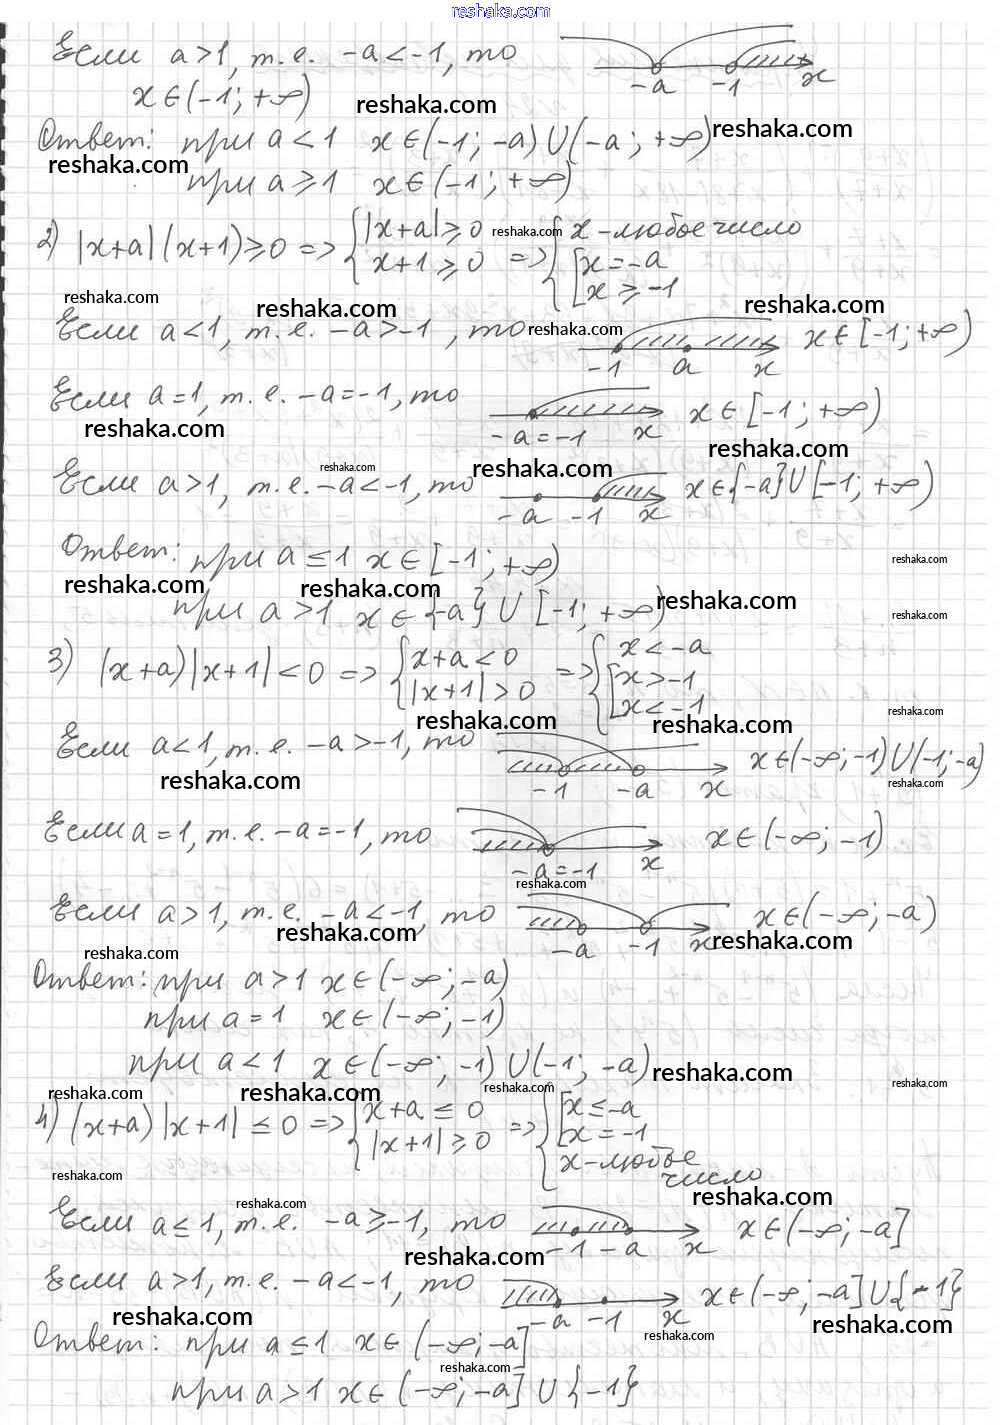 reshaka.com
Если a>1, т.е. -a<-1, то
-a -1 x
x∈(-1; +∞)
reshaka.com
Ответ: при a<1 x∈(-1; -a)∪(-a; +∞)
reshaka.com
reshaka.com
при a≥1 x∈(-1; +∞)
2) |x+a|(x+1)≥0 => {|x+a|≥0 reshaka.com {x - любое число
x+1≥0 => [x=-a
[x≥-1
reshaka.com
reshaka.com
reshaka.com
Если a<1, т.е. -a>-1, то reshaka.com x∈[-1; +∞)
-1 a x
Если a=1, т.е. -a=-1, то x∈[-1; +∞)
reshaka.com -a=-1 x
reshaka.com
reshaka.com
reshaka.com
Если a>1, т.е. -a<-1, то x∈{-a}∪[-1; +∞)
-a -1 x
Ответ: при a≤1 x∈[-1; +∞)
reshaka.com
reshaka.com
reshaka.com
при a>1 x∈{-a}∪[-1; +∞)
reshaka.com
reshaka.com
3) (x+a)|x+1|<0 => {x+a<0 => {x<-a
|x+1|>0 [x>-1
[x<-1
reshaka.com
reshaka.com
reshaka.com
Если a<1, т.е. -a>-1, то x∈(-∞; -1)∪(-1; -a)
reshaka.com -1 -a x reshaka.com
Если a=1, т.е. -a=-1, то x∈(-∞; -1)
-a=-1 x
reshaka.com
Если a>1, т.е. -a<-1, то x∈(-∞; -a)
reshaka.com -a -1 x reshaka.com
reshaka.com
Ответ: при a>1 x∈(-∞; -a)
при a=1 x∈(-∞; -1)
при a<1 x∈(-∞; -1)∪(-1; -a) reshaka.com
reshaka.com reshaka.com reshaka.com reshaka.com
4) (x+a)|x+1|≤0 => {x+a≤0 => {[x≤-a
|x+1|≥0 [x=-1
x - любое
число
reshaka.com
reshaka.com
reshaka.com
Если a≤1, т.е. -a≥-1, то x∈(-∞; -a]
-1 -a x
reshaka.com
Если a>1, т.е. -a<-1, то x∈(-∞; -a]∪{-1}
reshaka.com -a -1 x reshaka.com
Ответ: при a≤1 x∈(-∞; -a] reshaka.com
reshaka.com
при a>1 x∈(-∞; -a]∪{-1}